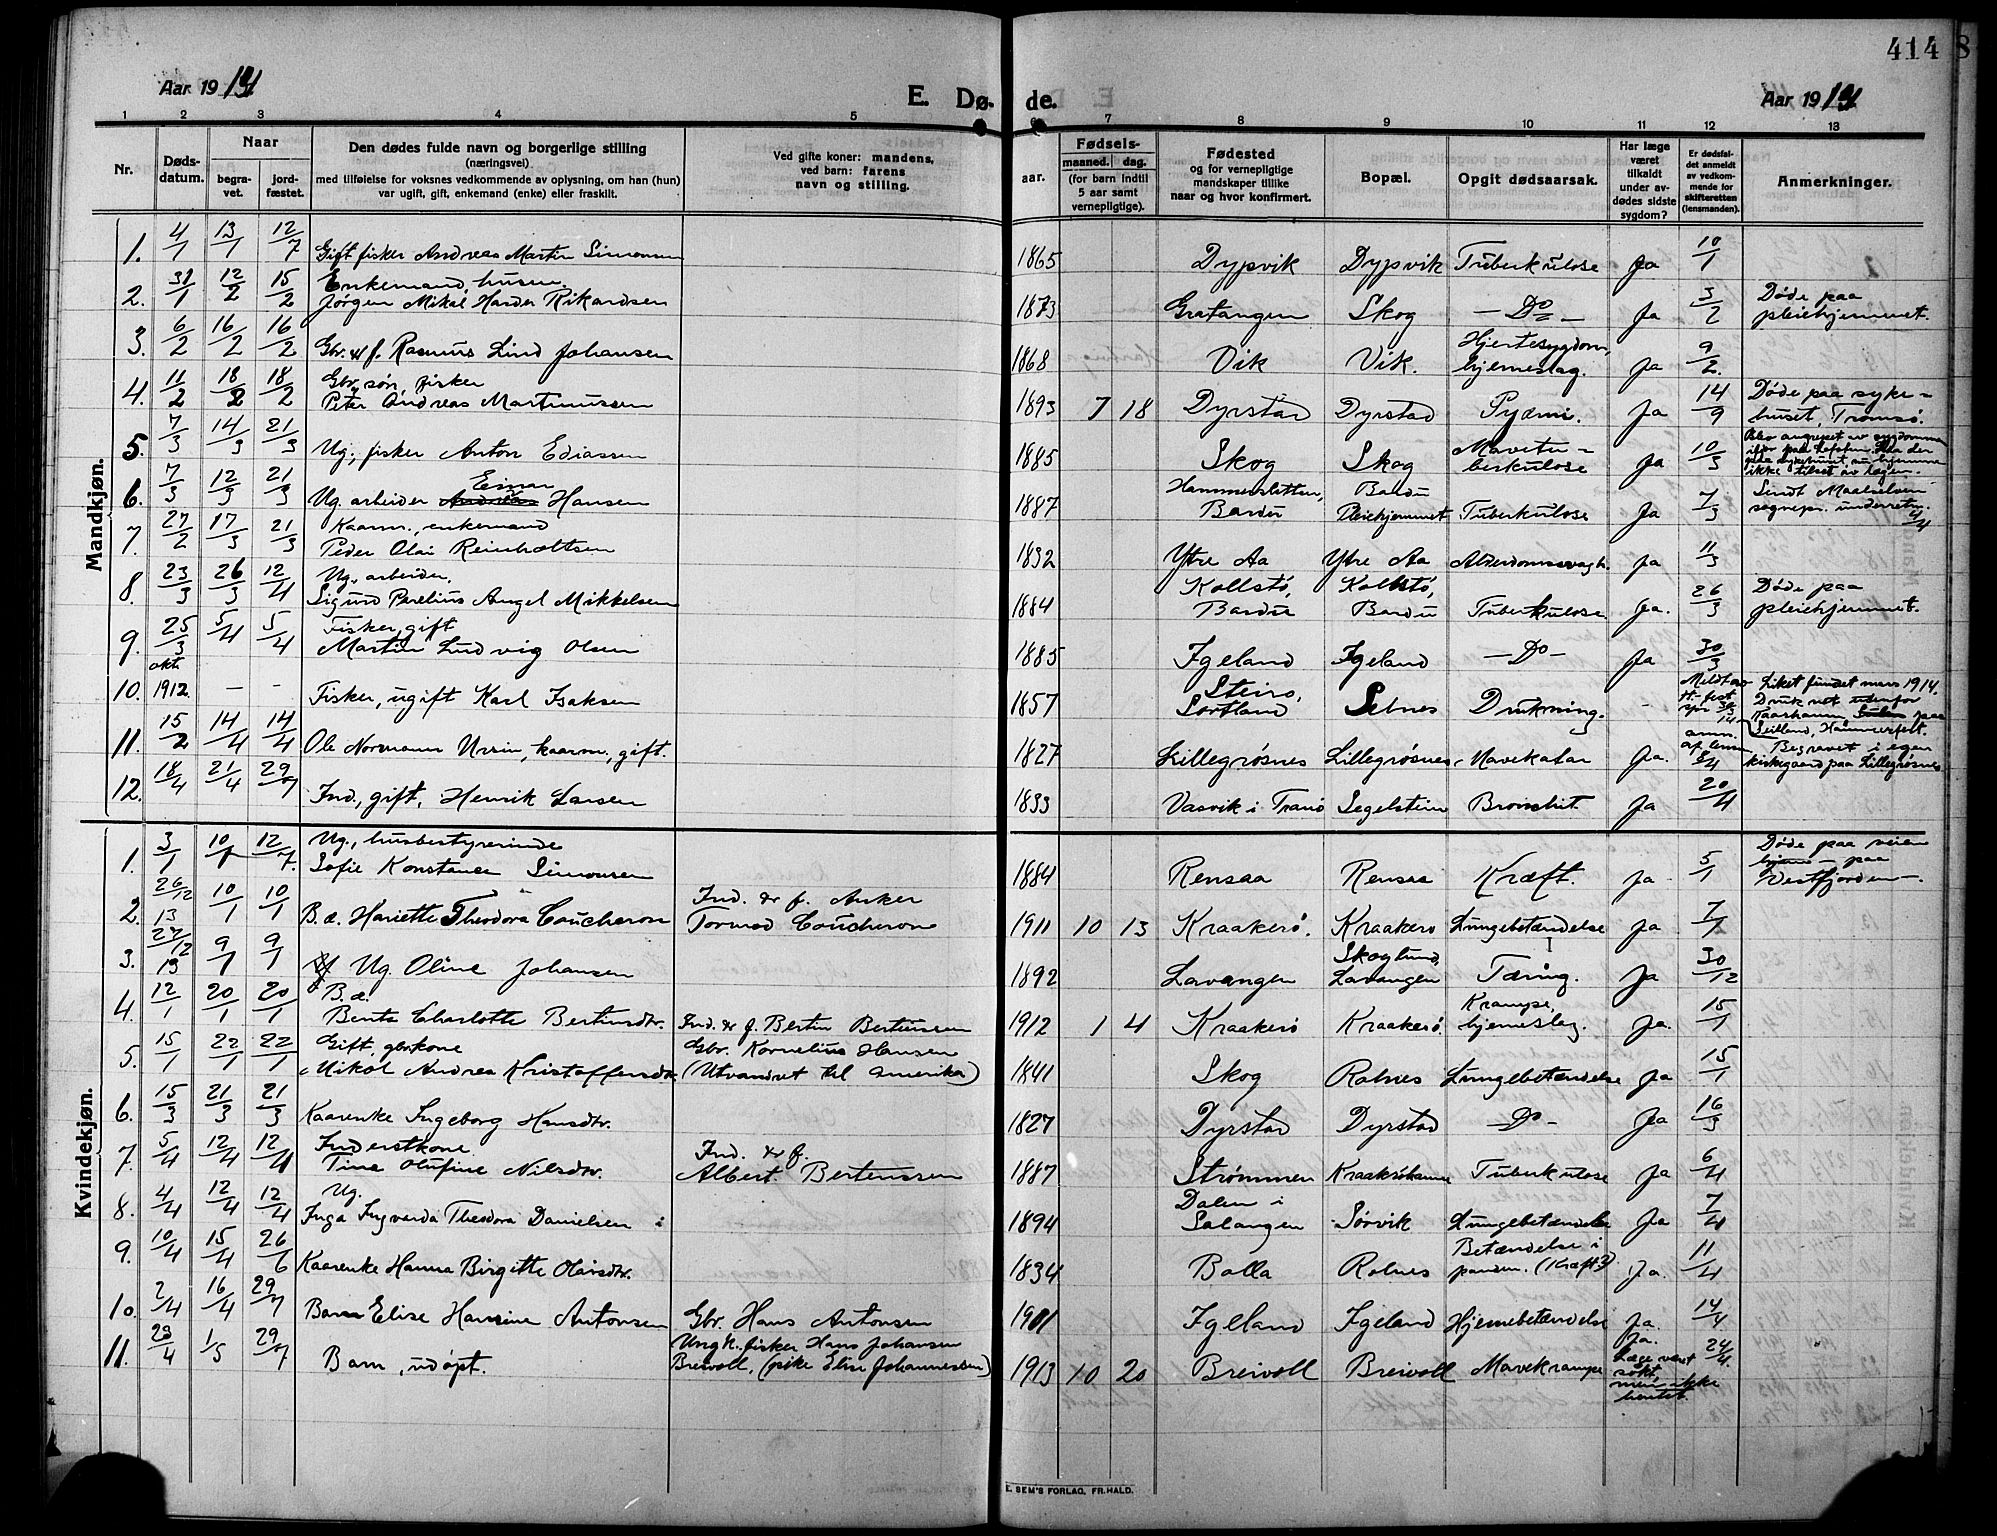 414
Aar 1914 E. Dø- de. Aar 1914
1 2 3 4 5 6 7 8 9 10 11 12 13
Nr. Døds-datum. Naar begra-vet. jord-fæstet. Den dødes fulde navn og borgerlige stilling (næringsvei) med tilføielse for voksnes vedkommende av oplysning, om han (hun) var ugift, gift, enkemand (enke) eller fraskilt. Ved gifte koner: mandens, ved barn: farens navn og stilling. Fødsels- aar. maaned. dag. (for barn indtil 5 aar samt vernepligtige). Fødested og for vernepligtige mandskaper tillike naar og hvor konfirmert. Bopæl. Opgit dødsaarsak. Har læge været tilkaldt under av-dødes sidste sygdom? Er dødsfal-det anmeldt av vedkom-mende for skifteretten (lensmanden). Anmerkninger.
Mandkjøn.
1. 4/1 13/1 12/7 Gift fisker Andreas Martin Simonsen 1865 Dypvik Dypvik Tuberkulose Ja 10/1
2. 31/1 12/2 15/2 Enkemand, husm. Jørgen Mikal Harder Rikardsen 1873 Gratangen Skog -Do- Ja 3/2 Døde paa pleiehjemmet.
3. 6/2 16/2 16/2 Gbr. & f. Rasmus Lind Johansen 1868 Vik Vik. Hjertesygdom, hjerneslag. Ja 9/2.
4. 11/2 18/2 18/2 Gbr. søn, fisker Peter Andreas Martinussen 1893 7 18 Dyrstad Dyrstad Pyæmi. Ja 14/9 Døde paa syke-huset, Tromsø.
5. 7/3 14/3 21/3 Ug., fisker Anton Ediassen 1885 Skog Skog Mavetu-berkulose Ja 10/3
6. 7/3 12/3 21/3 Ug. arbeider Andreas Einar Hansen 1887 Bardu Bardu Pleiehjemmet Tuberkulose Ja 7/3
7. 27/2 17/3 21/3 Kaarm., enkemand Peder Olai Reinholtsen 1832 Ytre Aa Ytre Aa Alderdomssvagh. Ja 11/3
8. 23/3 26/3 12/4 Ug., arbeider. Sigurd Perelius Angel Mikkelsen 1884 Kollstø, Bardu Kollstø, Bardu Tuberkulose Ja. 26/3 Døde paa pleiehjemmet.
9. 25/3 5/4 5/4 Fisker, gift Martin Ludvig Olsen 1885 Igeland Igeland -Do- Ja 30/3
10. okt. 1912 - - Fisker, ugift Karl Isaksen 1857 Steiro, Sortland Selnes Drukning. - Liket fundet mars 1914. Druknet utenfor paa Seilland, Hammerfest.
11. 15/2 14/4 14/4 Ole Normann Ursin, kaarm., gift. 1827 Lillegrøsnes Lillegrøsnes Mavekatar Ja. anm. af lensm. 8/4 Begravet i egen kirkegaard paa Lillegrøsnes
12. 18/4 21/4 29/7 Ind., gift, Henrik Larsen 1833 Vasvik i Tranø Segelstein Bronchit. Ja 20/4
Kvindekjøn.
1. 3/1 10/1 12/7. Ug., husbestyrerinde Sofie Konstance Simonsen 1884 Rensaa Rensaa Kræft. Ja 5/1 Døde paa veien hjem - paa Vestfjorden.
2. 26/12 13 10/1 10/1 B.æ. Hariette Theodora Coucheron Ind. & f. Anker Tormod Coucheron 1911 10 13 Kraakerø. Kraakerø Lungebetændelse Ja 7/1
3. 27/12 13 9/1 9/1 Ug. Oline Johansen 1892 Lavangen Skoglund, Lavangen Tæring. Ja 30/12
4. 12/1 20/1 20/1 B.æ. Benta Charlotte Bertinsdtr. Ind. & f. Bertin Bertinssen 1912 1 4 Kraakerø Kraakerø Krampe, hjerneslag. Ja. 15/1
5. 15/1 22/1 22/1 Gift, gbrkone Mikal Andrea Kristoffersdtr. Gbr. Kornelius Hansen (Utvandret til Amerika) 1841 Skog Rotnes Lungebetændelse Ja 15/1
6. 15/3 21/3 21/3 Kaarenke Ingeborg Hansdtr. 1827 Dyrstad Dyrstad -Do- Ja 16/3
7. 5/4 12/4 12/4 Inderstkone. Tina Olufine Nilsdtr. Ind. & f. Albert Bertinssen 1887 Strømmen Tuberkulose Ja 6/4
8. 4/4 12/4 12/4 Ug. Inga Ingvarda Theodora Danielsen 1894 Dalen i Salangen Sørvik Lungebetændelse Ja 7/4
9. 10/4 15/4 26/6 Kaarenke Hanna Birgitte Olaisdtr. 1834 Bolla Rotnes Betændelse i panden. (Kræft?) Ja. 11/4
10. 2/4 16/4 29/7 Barn Elise Hansine Antonsen Gbr. Hans Antonsen 1901 Igeland Igeland Hjernebetændelse Ja. 14/4
11. 23/4 1/5 29/7 Barn, udøpt. Ungk. fisker Hans Johansen Breivoll, (pike Elise Johannessen) 1913 10 20 Breivoll Breivoll Mavekrampe Ja. Læge vært søkt, men ikke hentet. 24/4.
E. SEM'S FORLAG, FR.HALD.